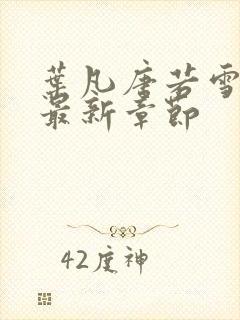 葉凡唐若雪
最新章節
42度神